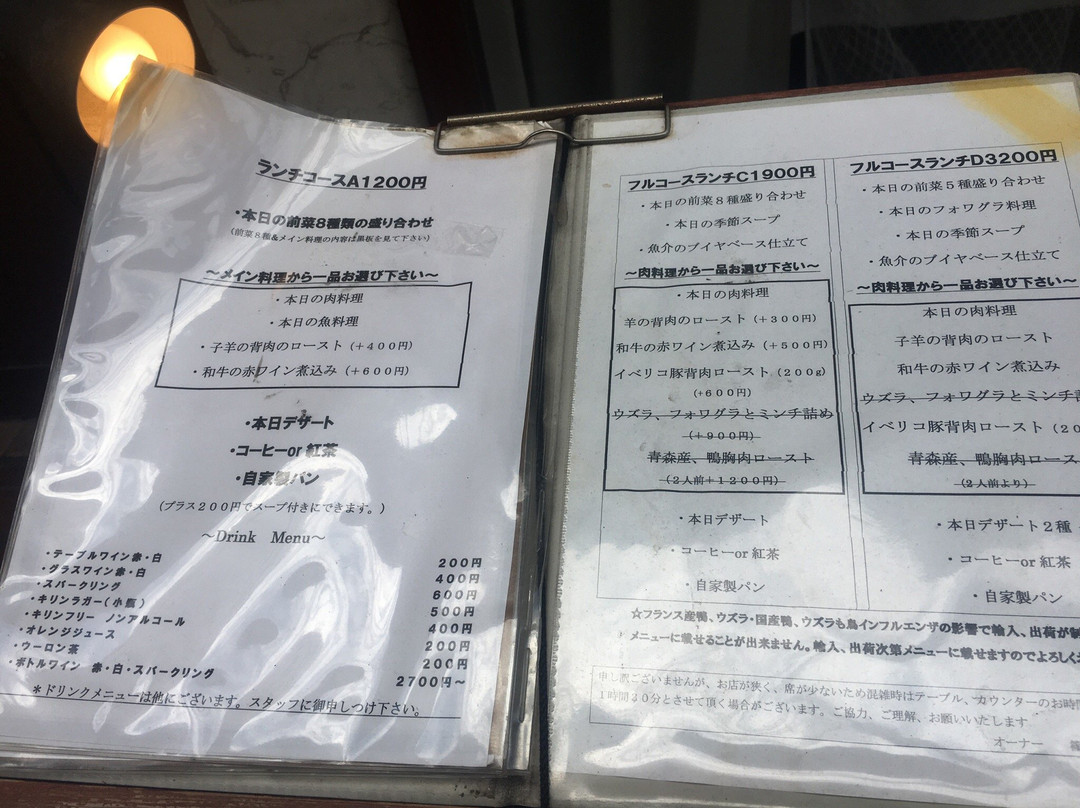 ランチコースA1200円
・本日の前菜8種類の盛り合わせ
(前菜8種&メイン料理の内容は黒板を見て下さい)
～メイン料理から一品お選び下さい～
・本日の肉料理
・本日の魚料理
・子羊の背肉のロースト（＋４００円）
・和牛の赤ワイン煮込み（＋６００円）
・本日デザート
・コーヒーor 紅茶
・自家製パン
（プラス２００円でスープ付きにできます。）
～Drink Menu～
・テーブルワイン赤・白 200円
・グラスワイン赤・白 400円
・スパークリング 600円
・キリンラガー(小瓶) 500円
・キリンフリー ノンアルコール 400円
・オレンジジュース 200円
・ウーロン茶 200円
・ボトルワイン 赤・白・スパークリング 2700円～
＊ドリンクメニューは他にございます。スタッフに御申しつけ下さい。
フルコースランチC1900円
・本日の前菜８種盛り合わせ
・本日の季節スープ
・魚介のブイヤベース仕立て
～肉料理から一品お選び下さい～
・本日の肉料理
羊の背肉のロースト（＋３００円）
和牛の赤ワイン煮込み（＋５００円）
イベリコ豚背肉ロースト（２００g）
（＋６００円）
ウズラ、フォワグラとミンチ詰め
（＋９００円）
青森産、鴨胸肉ロースト
（２人前＋１２００円）
・本日デザート
・コーヒーor 紅茶
・自家製パン
フルコースランチD3200円
・本日の前菜５種盛り合わせ
・本日のフォワグラ料理
・本日の季節スープ
・魚介のブイヤベース仕立て
～肉料理から一品お選び下さい～
本日の肉料理
子羊の背肉のロースト
和牛の赤ワイン煮込み
ウズラ、フォワグラとミンチ詰
イベリコ豚背肉ロースト（２０
青森産、鴨胸肉ロース
（２人前より）
・本日デザート２種
・コーヒーor 紅茶
・自家製パン
☆フランス産鴨、ウズラ・国産鴨、ウズラも鳥インフルエンザの影響で輸入、出荷が制
メニューに載せることが出来ません。輸入、出荷次第メニューに載せますのでよろしく
申し訳ございませんが、お店が狭く、席が少ないため混雑時はテーブル、カウンターのお時間
１時間３０分とさせて頂く場合がございます。ご協力、ご理解、お願いいたします
オーナー